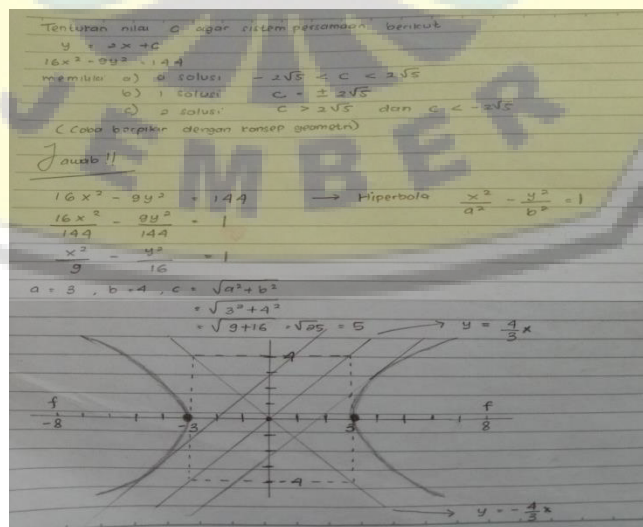 Tentukan nilai c agar sistem persamaan berikut
y = 2x + c
16x² - 9y² = 144
memiliki a) 0 solusi - 2√5 < c < 2√5
b) 1 solusi c = ± 2√5
c) 2 solusi c > 2√5 dan c < -2√5
(Coba berpikir dengan konsep geometri)
Jawab !!
EMBER
16x² - 9y² = 144 → Hiperbola x²/a² - y²/b² = 1
16x²/144 - 9y²/144 = 1
x²/9 - y²/16 = 1
a = 3 , b = 4 , c = √a² + b²
= √3² + 4²
= √9 + 16 = √25 = 5
y = 4/3 x
4
f
f
-8
-3
3
8
-4
y = - 4/3 x